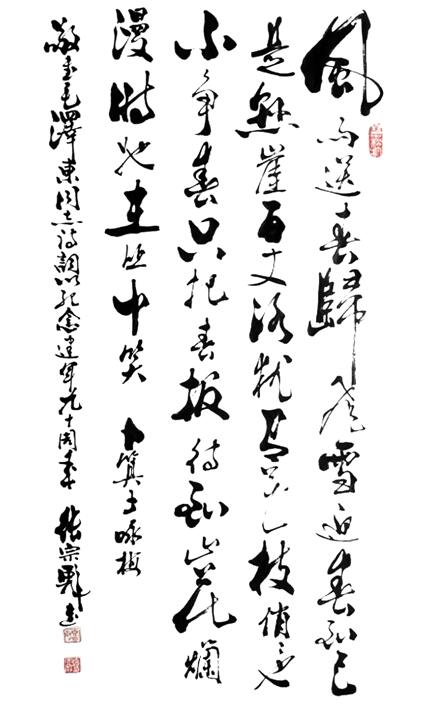 風雨送春歸飛雪迎春到已
是懸崖百丈冰猶有花枝俏〻也
不争春只把春报待到山花爛
漫時她在丛中笑 卜算子咏梅
敬書毛澤東同志詩詞以紀念建軍九十周年 張宗書